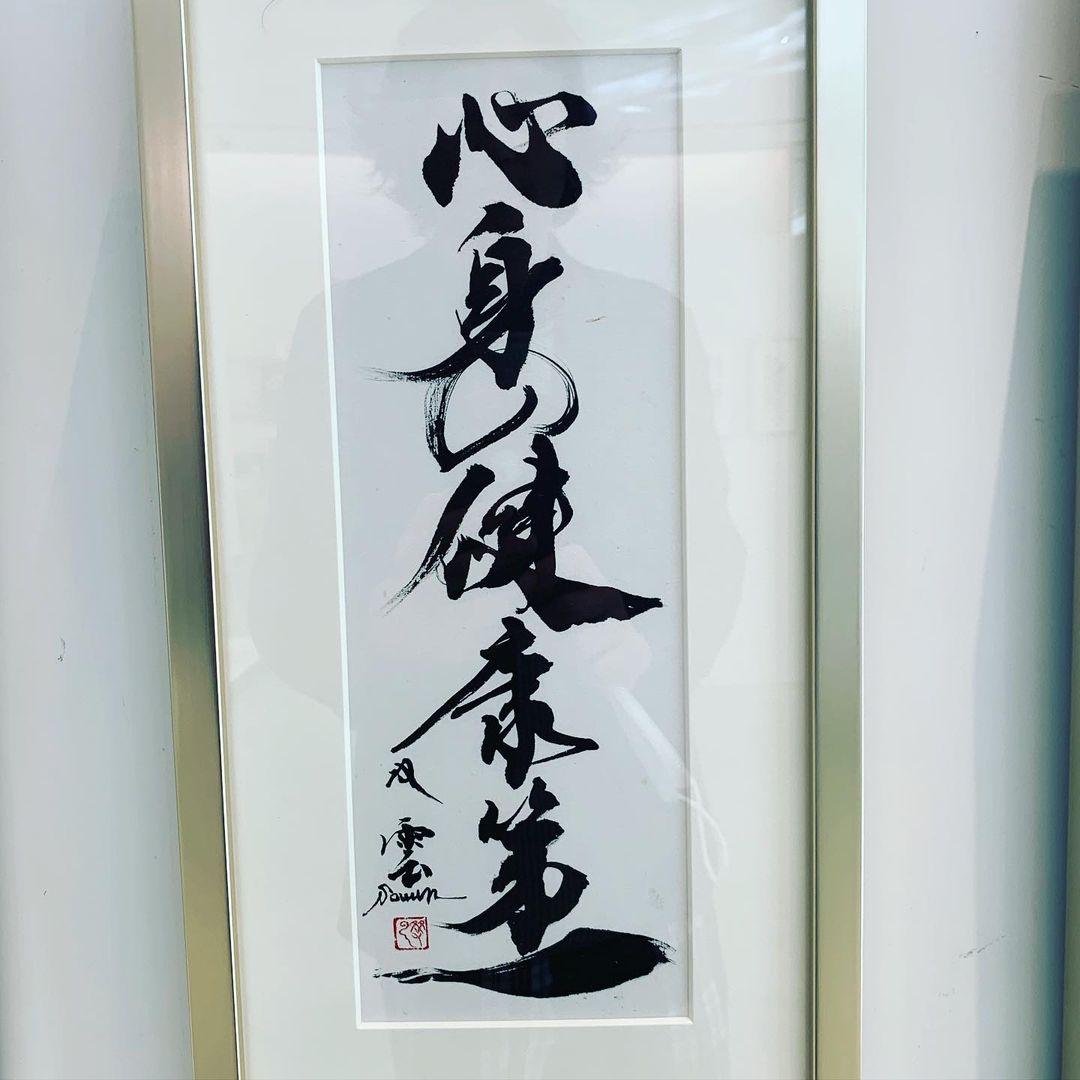 心身の健康第一
双雲
Souun